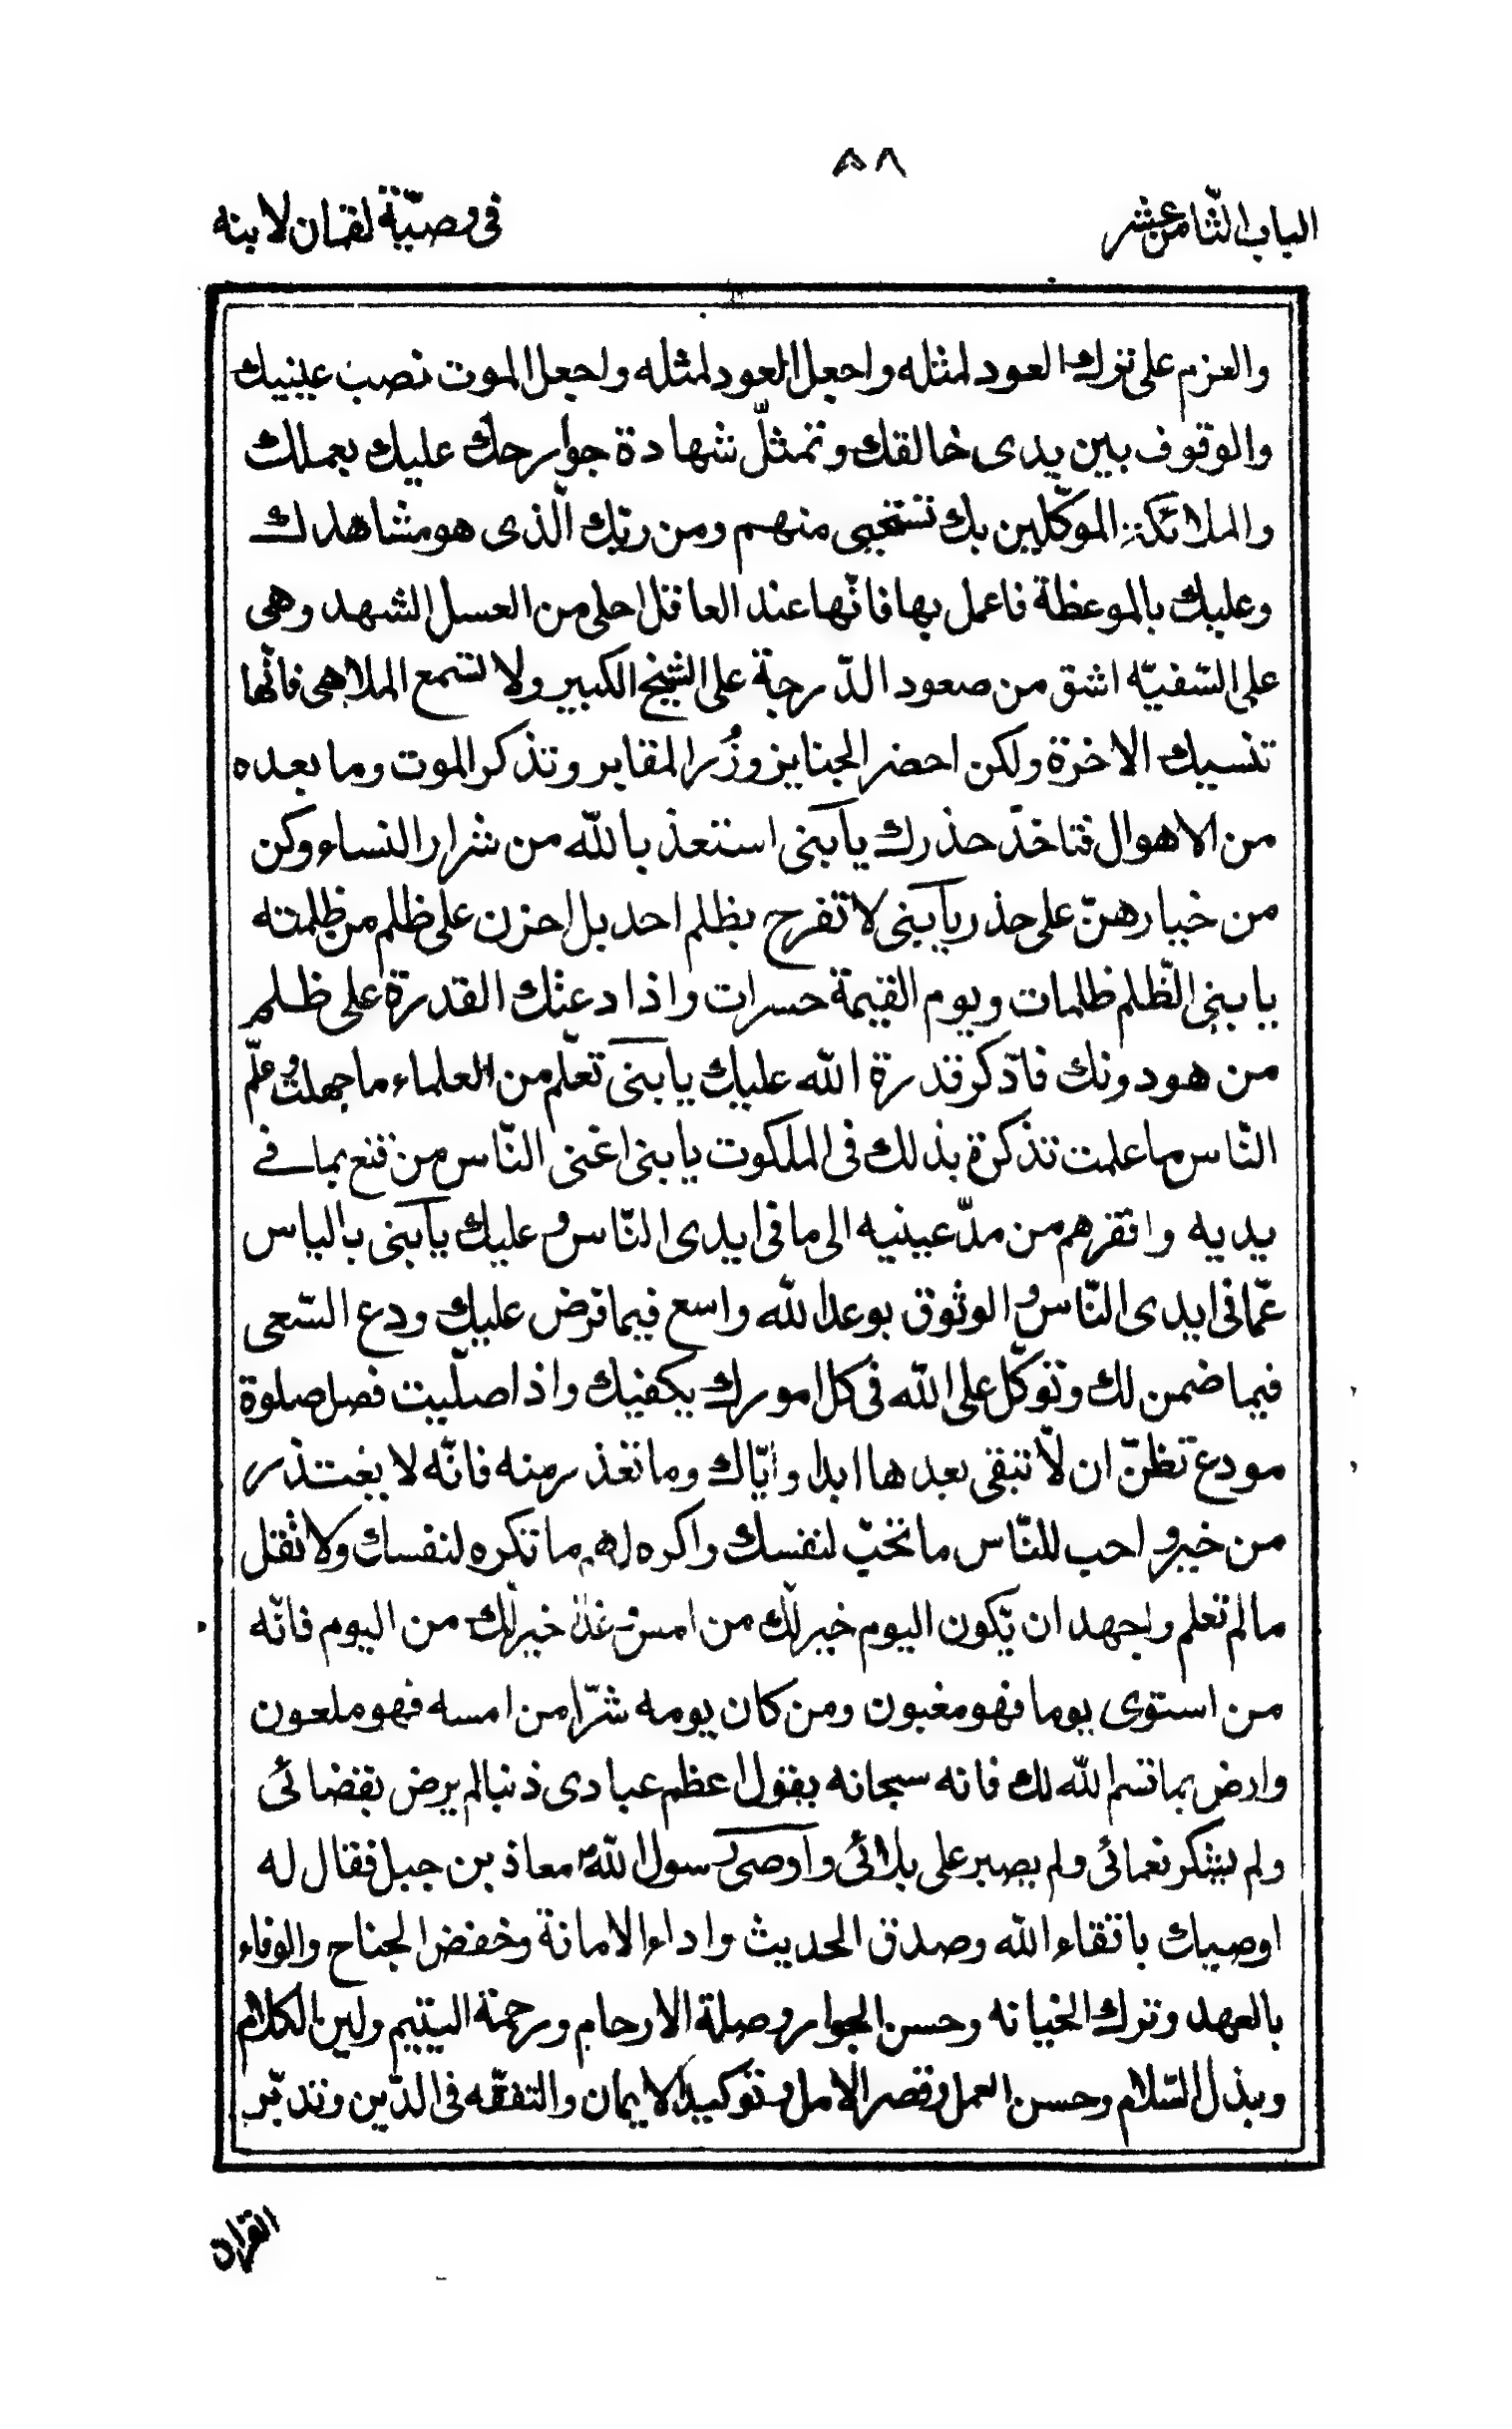 ٥٨
الباب الثّامن عشر
فى وصيّة لقمان لابنه
والعزم على ترك العود لمثله واجعل العود لمثله واجعل الموت نصب عينيك
والوقوف بين يدى خالقك وتمثّل شهادة جوارحك عليك بعملك
والملائكة الموكّلين بك تستحيى منهم ومن ربّك الّذى هو مشاهدك
وعليك بالموعظة فاعمل بها فانّها عند العاقل احلى من العسل الشهد وهى
على السّفيه اشق من صعود الدّرجة على الشيخ الكبير ولا تسمع الملاهى فانّها
تنسيك الاخرة ولكن احضر الجنايز وزُر المقابر وتذكر الموت وما بعده
من الاهوال فتاخذ حذرك يا بنى استعذ بالله من شرار النساء وكن
من خيارهنّ على حذر يا بنى لا تفرح بظلم احد بل احزن على ظلم من ظلمته
يا بنى الظّلم ظلمات ويوم القيمة حسرات واذا دعتك القدرة على ظلم
من هو دونك فاذّكر قدرة الله عليك يا بنى تعلّم من العلماء ما جهلت وعلّم
النّاس ما علمت تذكرة بذلك فى الملكوت يا بنى اغنى النّاس من قنع بما فى
يديه وافقرهم من مدّ عينيه الى ما فى ايدى النّاس وعليك يا بنى بالياس
عمّا فى ايدى النّاس والوثوق بوعد الله واسع فيما فرض عليك ودع السّعى
فيما ضمن لك وتوكّل على الله فى كل امورك يكفيك واذا صلّيت فصل صلوة
مودع تظنّ ان لّا تبقى بعدها ابدا وايّاك وما تعذر منه فانّه لا يعتذر
من خير واحب للنّاس ما تحبّ لنفسك واكره لهم ما تكره لنفسك ولا تقل
مالم تعلم واجهد ان يّكون اليوم خير لّك من امس وغدا خير لّك من اليوم فانّه
من استوى يوما فهو مغبون ومن كان يومه شرّا من امسه فهو ملعون
وارض بما قسم الله لك فانه سبحانه يقول اعظم عبادى ذنبا لم يرض بقضائى
ولم يشكر نعمائى ولم يصبر على بلائى واوصى رسول الله معاذ بن جبل فقال له
اوصيك باتقاء الله وصدق الحديث واداء الامانة وخفض الجناح والوفاء
بالعهد وترك الخيانه وحسن الجوار وصلة الارحام ورحمة اليتيم ولين الكلام
وبذل السّلام وحسن العمل وقصر الامل وتوكيد الايمان والتفقّه فى الدّين وتدبّر
القران